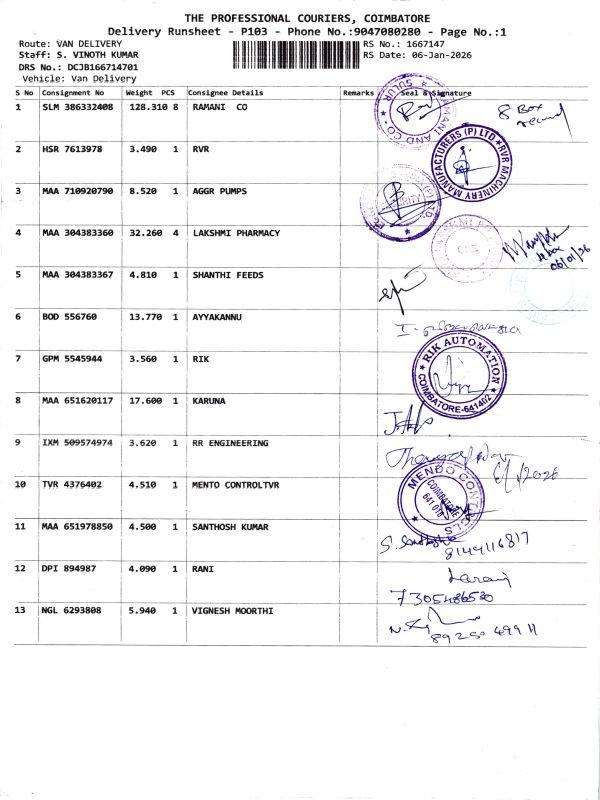 THE PROFESSIONAL COURIERS, COIMBATORE
Delivery Runsheet - P103 - Phone No.:9047080280 - Page No.:1
Route: VAN DELIVERY RS No.: 1667147
Staff: S. VINOTH KUMAR RS Date: 06-Jan-2026
DRS No.: DCJB166714701
Vehicle: Van Delivery
S No Consignment No Weight PCS Consignee Details Remarks Seal & Signature
1 SLM 386332408 128.310 8 RAMANI CO
RAMANI AND CO SULUR
8 Box
2 HSR 7613978 3.490 1 RVR
RVR MACHINERY MANUFACTURERS (P) LTD
3 MAA 710920790 8.520 1 AGGR PUMPS
4 MAA 304383360 32.260 4 LAKSHMI PHARMACY
06/01/26
5 MAA 304383367 4.810 1 SHANTHI FEEDS
6 BOD 556760 13.770 1 AYYAKANNU
7 GPM 5545944 3.560 1 RIK
RIK AUTOMATION COIMBATORE-641402
8 MAA 651620117 17.600 1 KARUNA
9 IXM 509574974 3.620 1 RR ENGINEERING
6/1/2026
10 TVR 4376402 4.510 1 MENTO CONTROLTVR
MENDO CONTROLS COIMBATORE
11 MAA 651978850 4.500 1 SANTHOSH KUMAR
8149116817
12 DPI 894987 4.090 1 RANI
7305486530
13 NGL 6293808 5.940 1 VIGNESH MOORTHI
89250 49911